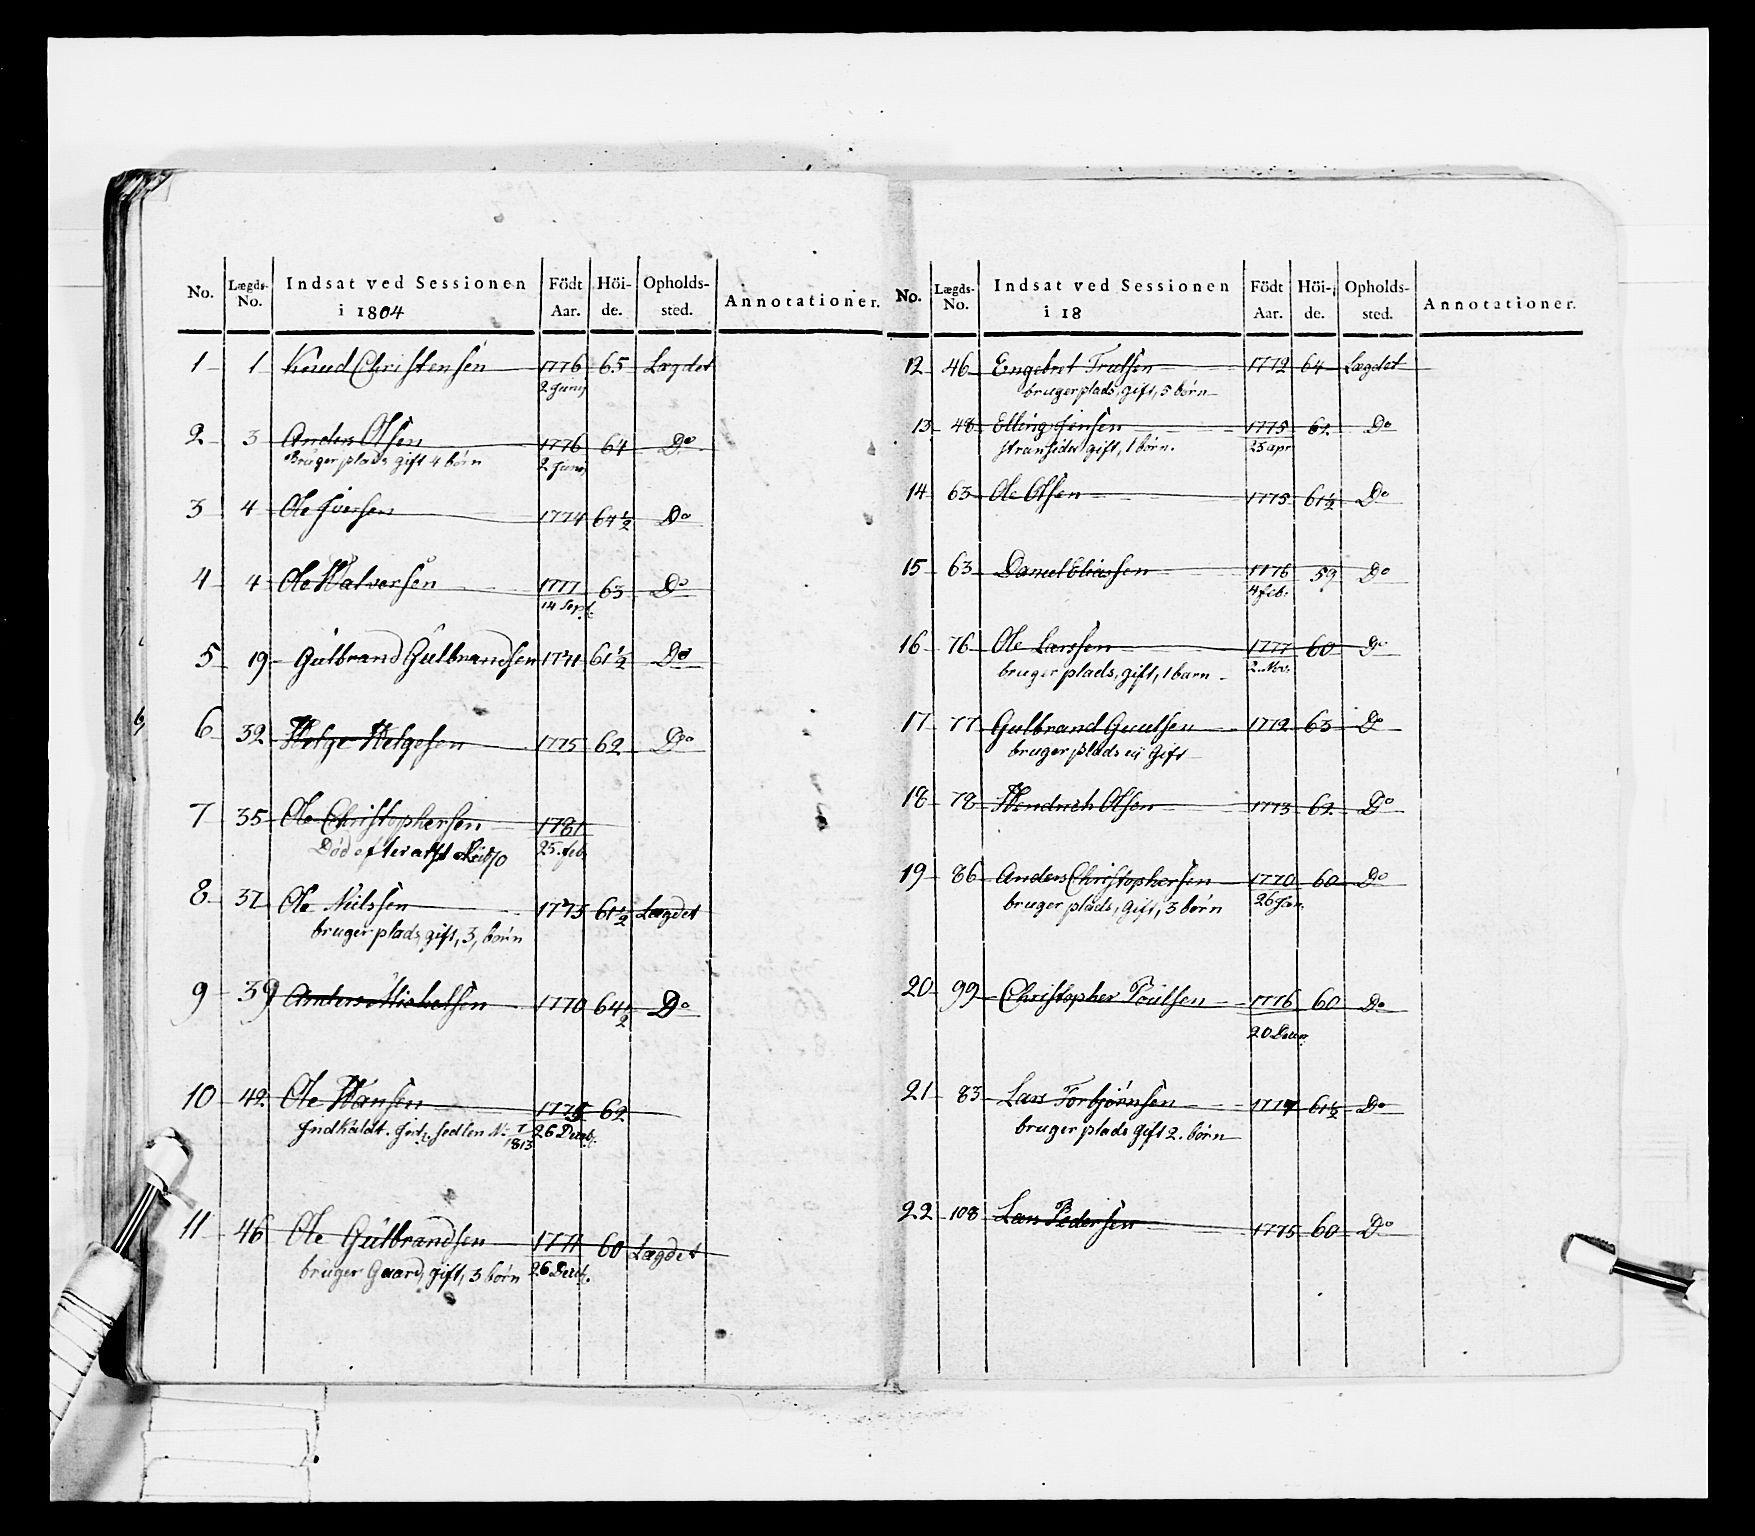 No. Lægds-No. Indsat ved Sessionen i 1804 Födt Aar. Höi-de. Opholds-sted. Annotationer.
1 1 Knud Christensen 1776 65 Lægdet
2 Junij
2 3 Anders Olsen 1776 64 Do
Bruger plads gift 4 børn 2 Junij
3 4 Ole Iversen 1774 64½ Do
4 4 Ole Halvorsen 1777 63 Do
14 Sept.
5 19 Gulbrand Gulbrandsen 1771 61½ Do
6 32 Helge Helgesen 1775 62 Do
7 35 Ole Christophersen 1781
Død efter 25. feb.
8 37 Ole Nielsen 1775 61½ Lægdet
bruger plads, gift, 3, børn
9 39 Anders Michelsen 1770 64½ Do
10 42 Ole Hansen 1775 62
Indkaldt. sedlen No 1 1813 26 Decbr.
11 46 Ole Gulbrandsen 1771 60 Lægdet
bruger Gaard, gift, 3 børn 26 Decbr.
No. Lægds-No. Indsat ved Sessionen i 18 Födt Aar. Höi-de. Opholds-sted. Annotationer.
12 46 Engebret Trulsen 1772 64 Lægdet
bruger plads, gift, 5 børn
13 48 Elling Jensen 1775 62 Do
Stransider gift, 1 børn. 25 apr
14 63 Ole Olsen 1775 61½ Do
15 63 Daniel Eliassen 1776 59 Do
4 feb.
16 76 Ole Larsen 1777 60 Do
bruger plads, gift, 1 barn 2. Nov.
17 77 Gulbrand Guulsen 1772 63 Do
bruger plads ej Gift
18 78 Hendrich Olsen 1773 62 Do
19 86 Anders Christophersen 1770 60 Do
bruger plads, Gift, 3 børn 26 Jan.
20 99 Christopher Poulsen 1776 60 Do
20 Decbr.
21 83 Lars Torbjørnsen 1774 61½ Do
bruger plads Gift 2. børn
22 108 Lars Pedersen 1775 60 Do